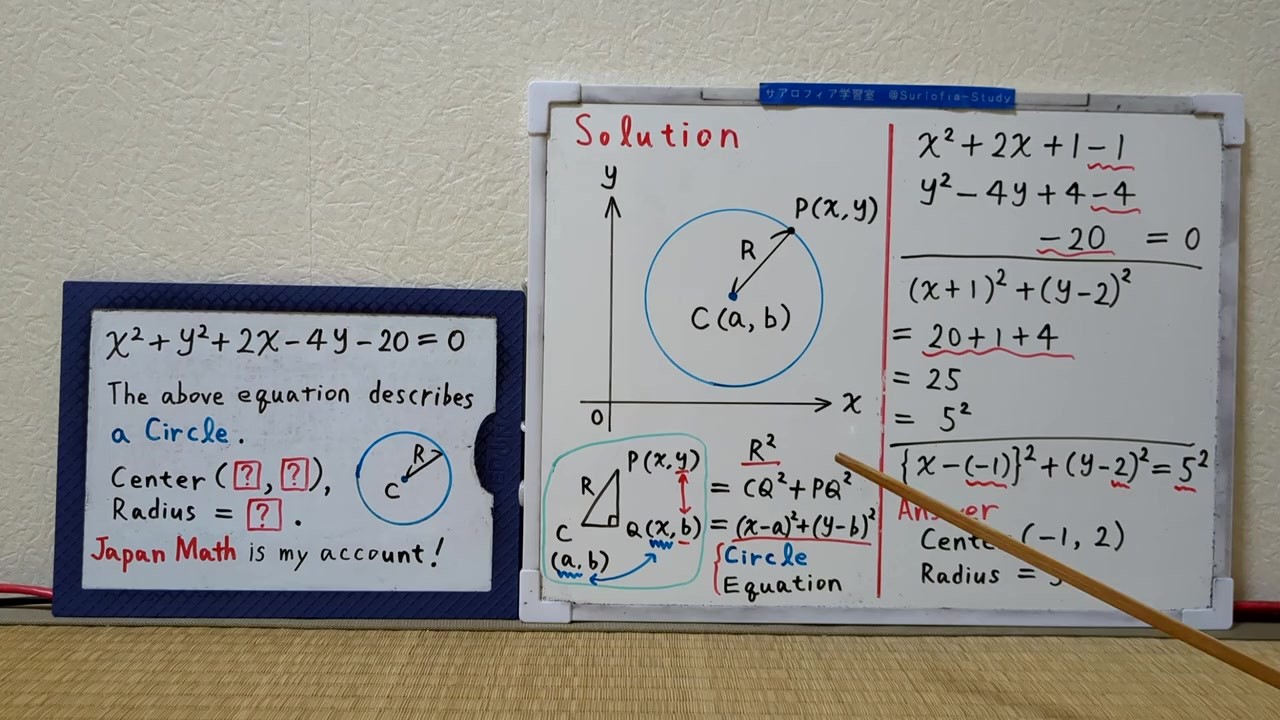 x²+y²+2x-4y-20=0
The above equation describes
a Circle.
Center (?, ?),
Radius = ?.
R
C
Japan Math is my account!
サアロフィア学習室 @Surlofia-Study
Solution
y
P(x,y)
R
C(a,b)
0
x
P(x,y)
R
C
Q(x,b)
(a,b)
R²
= CQ²+PQ²
= (x-a)²+(y-b)²
Circle
Equation
x²+2x+1-1
y²-4y+4-4
-20 = 0
(x+1)²+(y-2)²
= 20+1+4
= 25
= 5²
{x-(-1)}²+(y-2)²=5²
Answer
(-1, 2)
Radius =